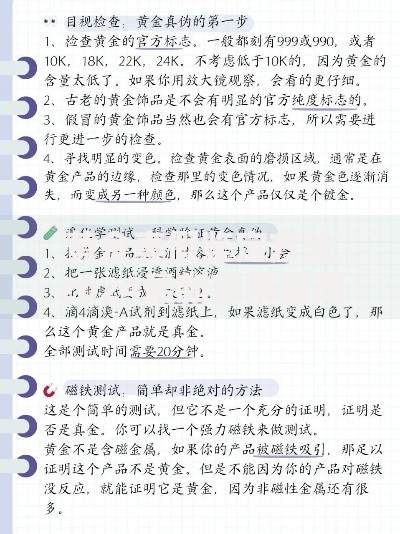 目视检查,黄金真伪的第一步
1、检查黄金的官方标志,一般都刻有999或990,或者
10K,18K,22K,24K,不考虑低于10K的,因为黄金的
含量太低了。如果你用放大镜观察,会看的更仔细。
2、古老的黄金饰品是不会有明显的官方纯度标志的。
3、假冒的黄金饰品当然也会有官方标志,所以需要进
行更进一步的检查。
4、寻找明显的变色,检查黄金表面的磨损区域,通常是在
黄金产品的边缘,检查那里的变色情况,如果黄金色逐渐消
失,而变成另一种颜色,那么这个产品仅仅是个镀金。
2、把一张滤纸浸
4、滴4滴溴-A试剂到滤纸上,如果滤纸变成白色了,那
么这个黄金产品就是真金。
全部测试时间需要20分钟。
磁铁测试,简单却非绝对的方法
这是个简单的测试,但它不是一个充分的证明,证明是
否是真金。你可以找一个强力磁铁来做测试。
黄金不是含磁金属,如果你的产品被磁铁吸引,那足以
证明这个产品不是黄金。但是不能因为你的产品对磁铁
没反应,就能证明它是黄金,因为非磁性金属还有很
多。